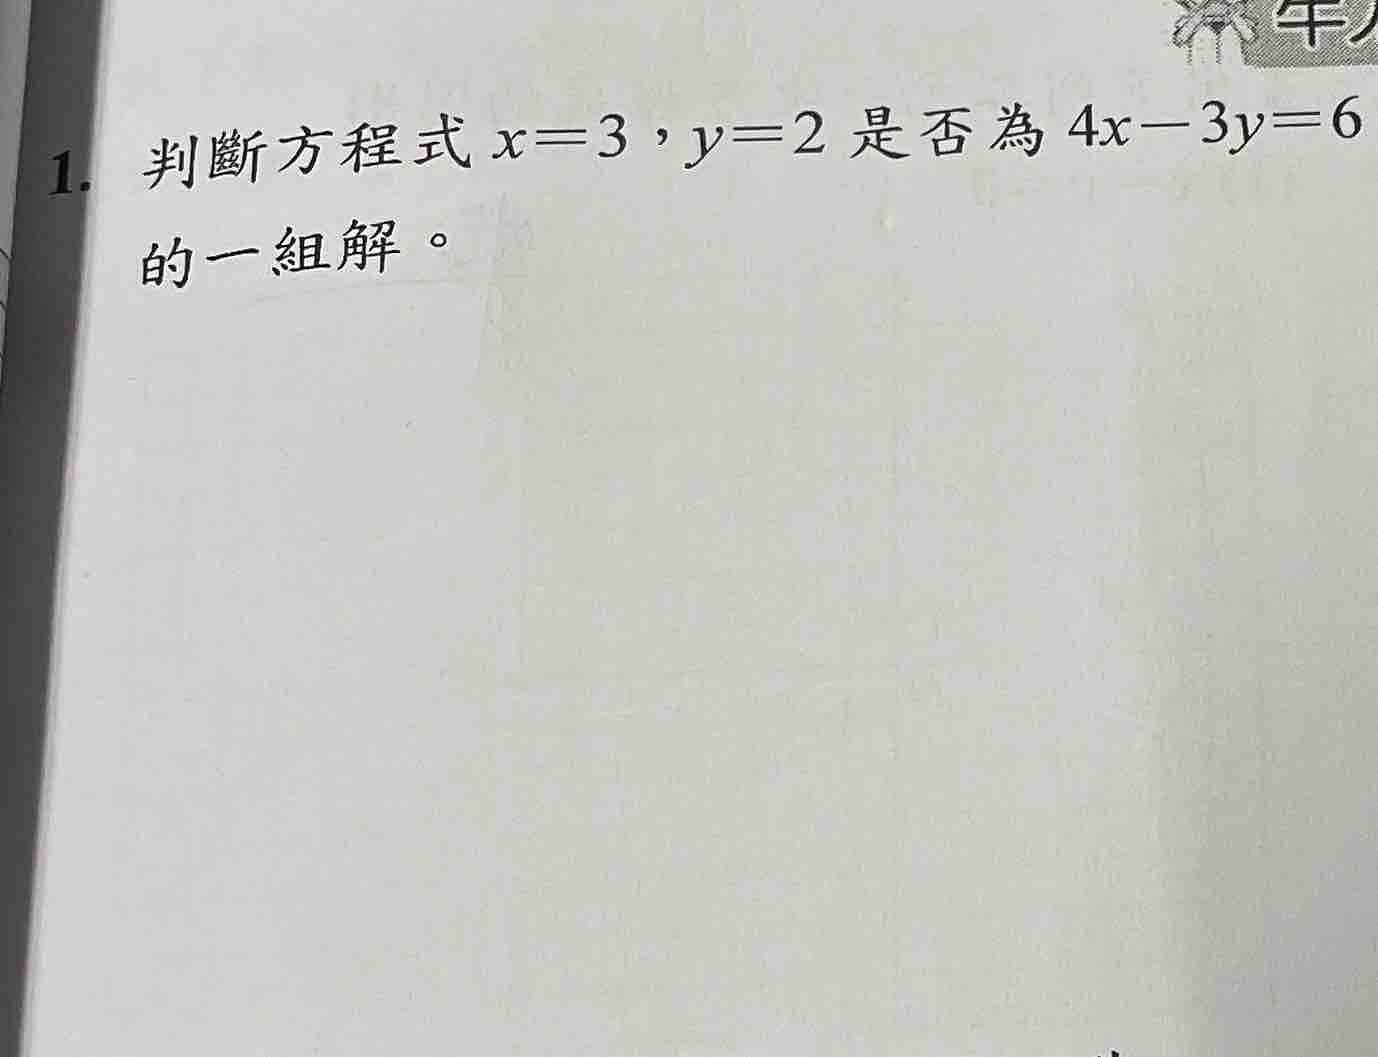 1. 判斷方程式 x=3,y=2 是否為 4x-3y=6
的一組解。